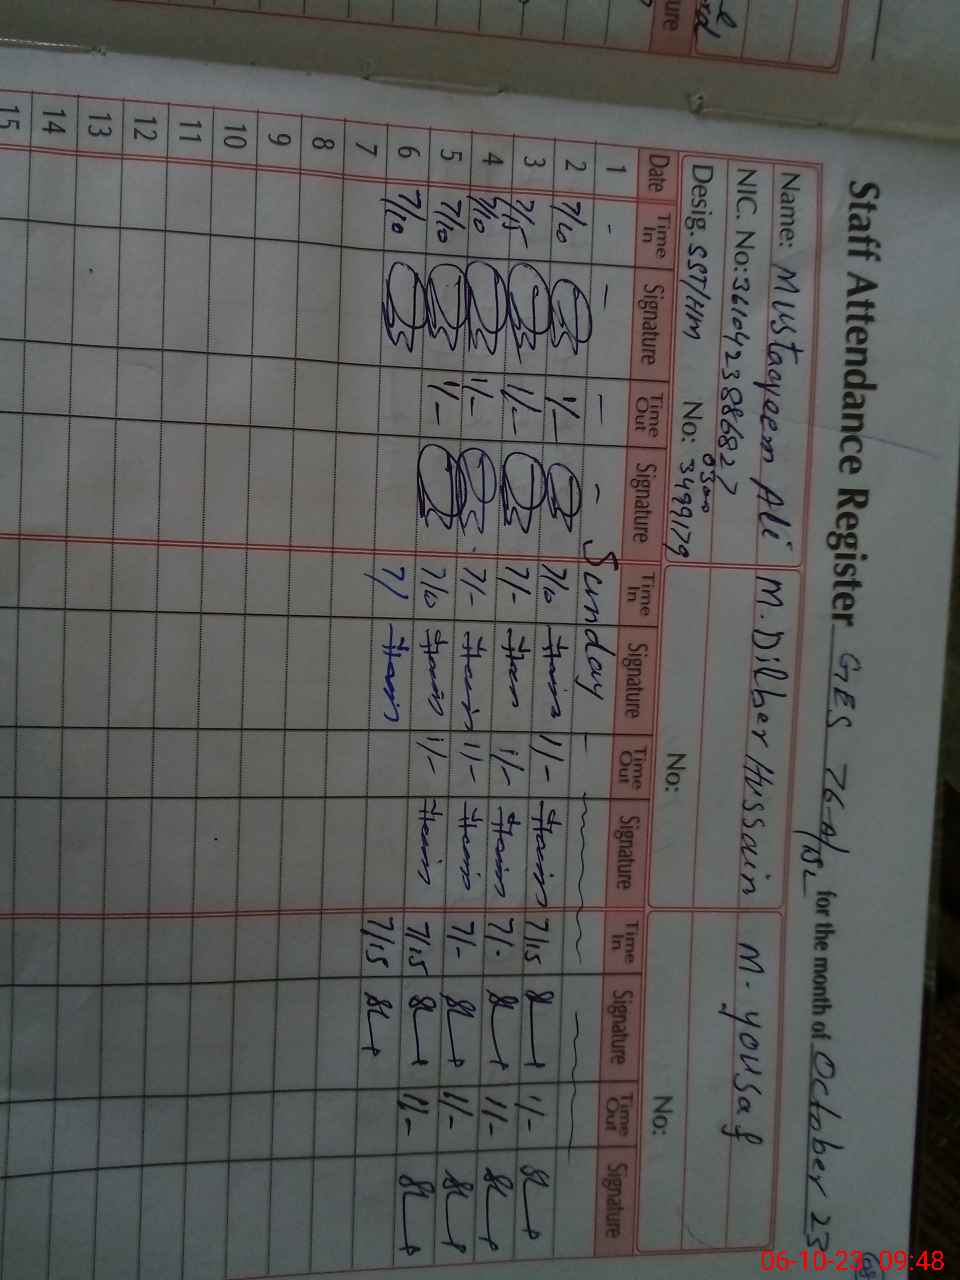 Staff Attendance Register GES 76-A/15L for the month of October 23
Name: Mustaqeem Ali M. Dilber Hussain M. Yousaf
NIC. No: 3610423886827
Desig. SST/HM No: 0300 3499179 No: No:
Date Time In Signature Time Out Signature Time In Signature Time Out Signature Time In Signature Time Out Signature
1 - - - - Sunday -
2 7/10 1/- 7/10 1/- 7/15 1/-
3 7/15 1/- 7/- 1/- 7/- 1/-
4 7/10 1/- 7/- 1/- 7/- 1/-
5 7/10 1/- 7/10 1/- 7/15 1/-
6 7/10 7/ 7/15
7
8
9
10
11
12
13
14
15
06-10-23 09:48